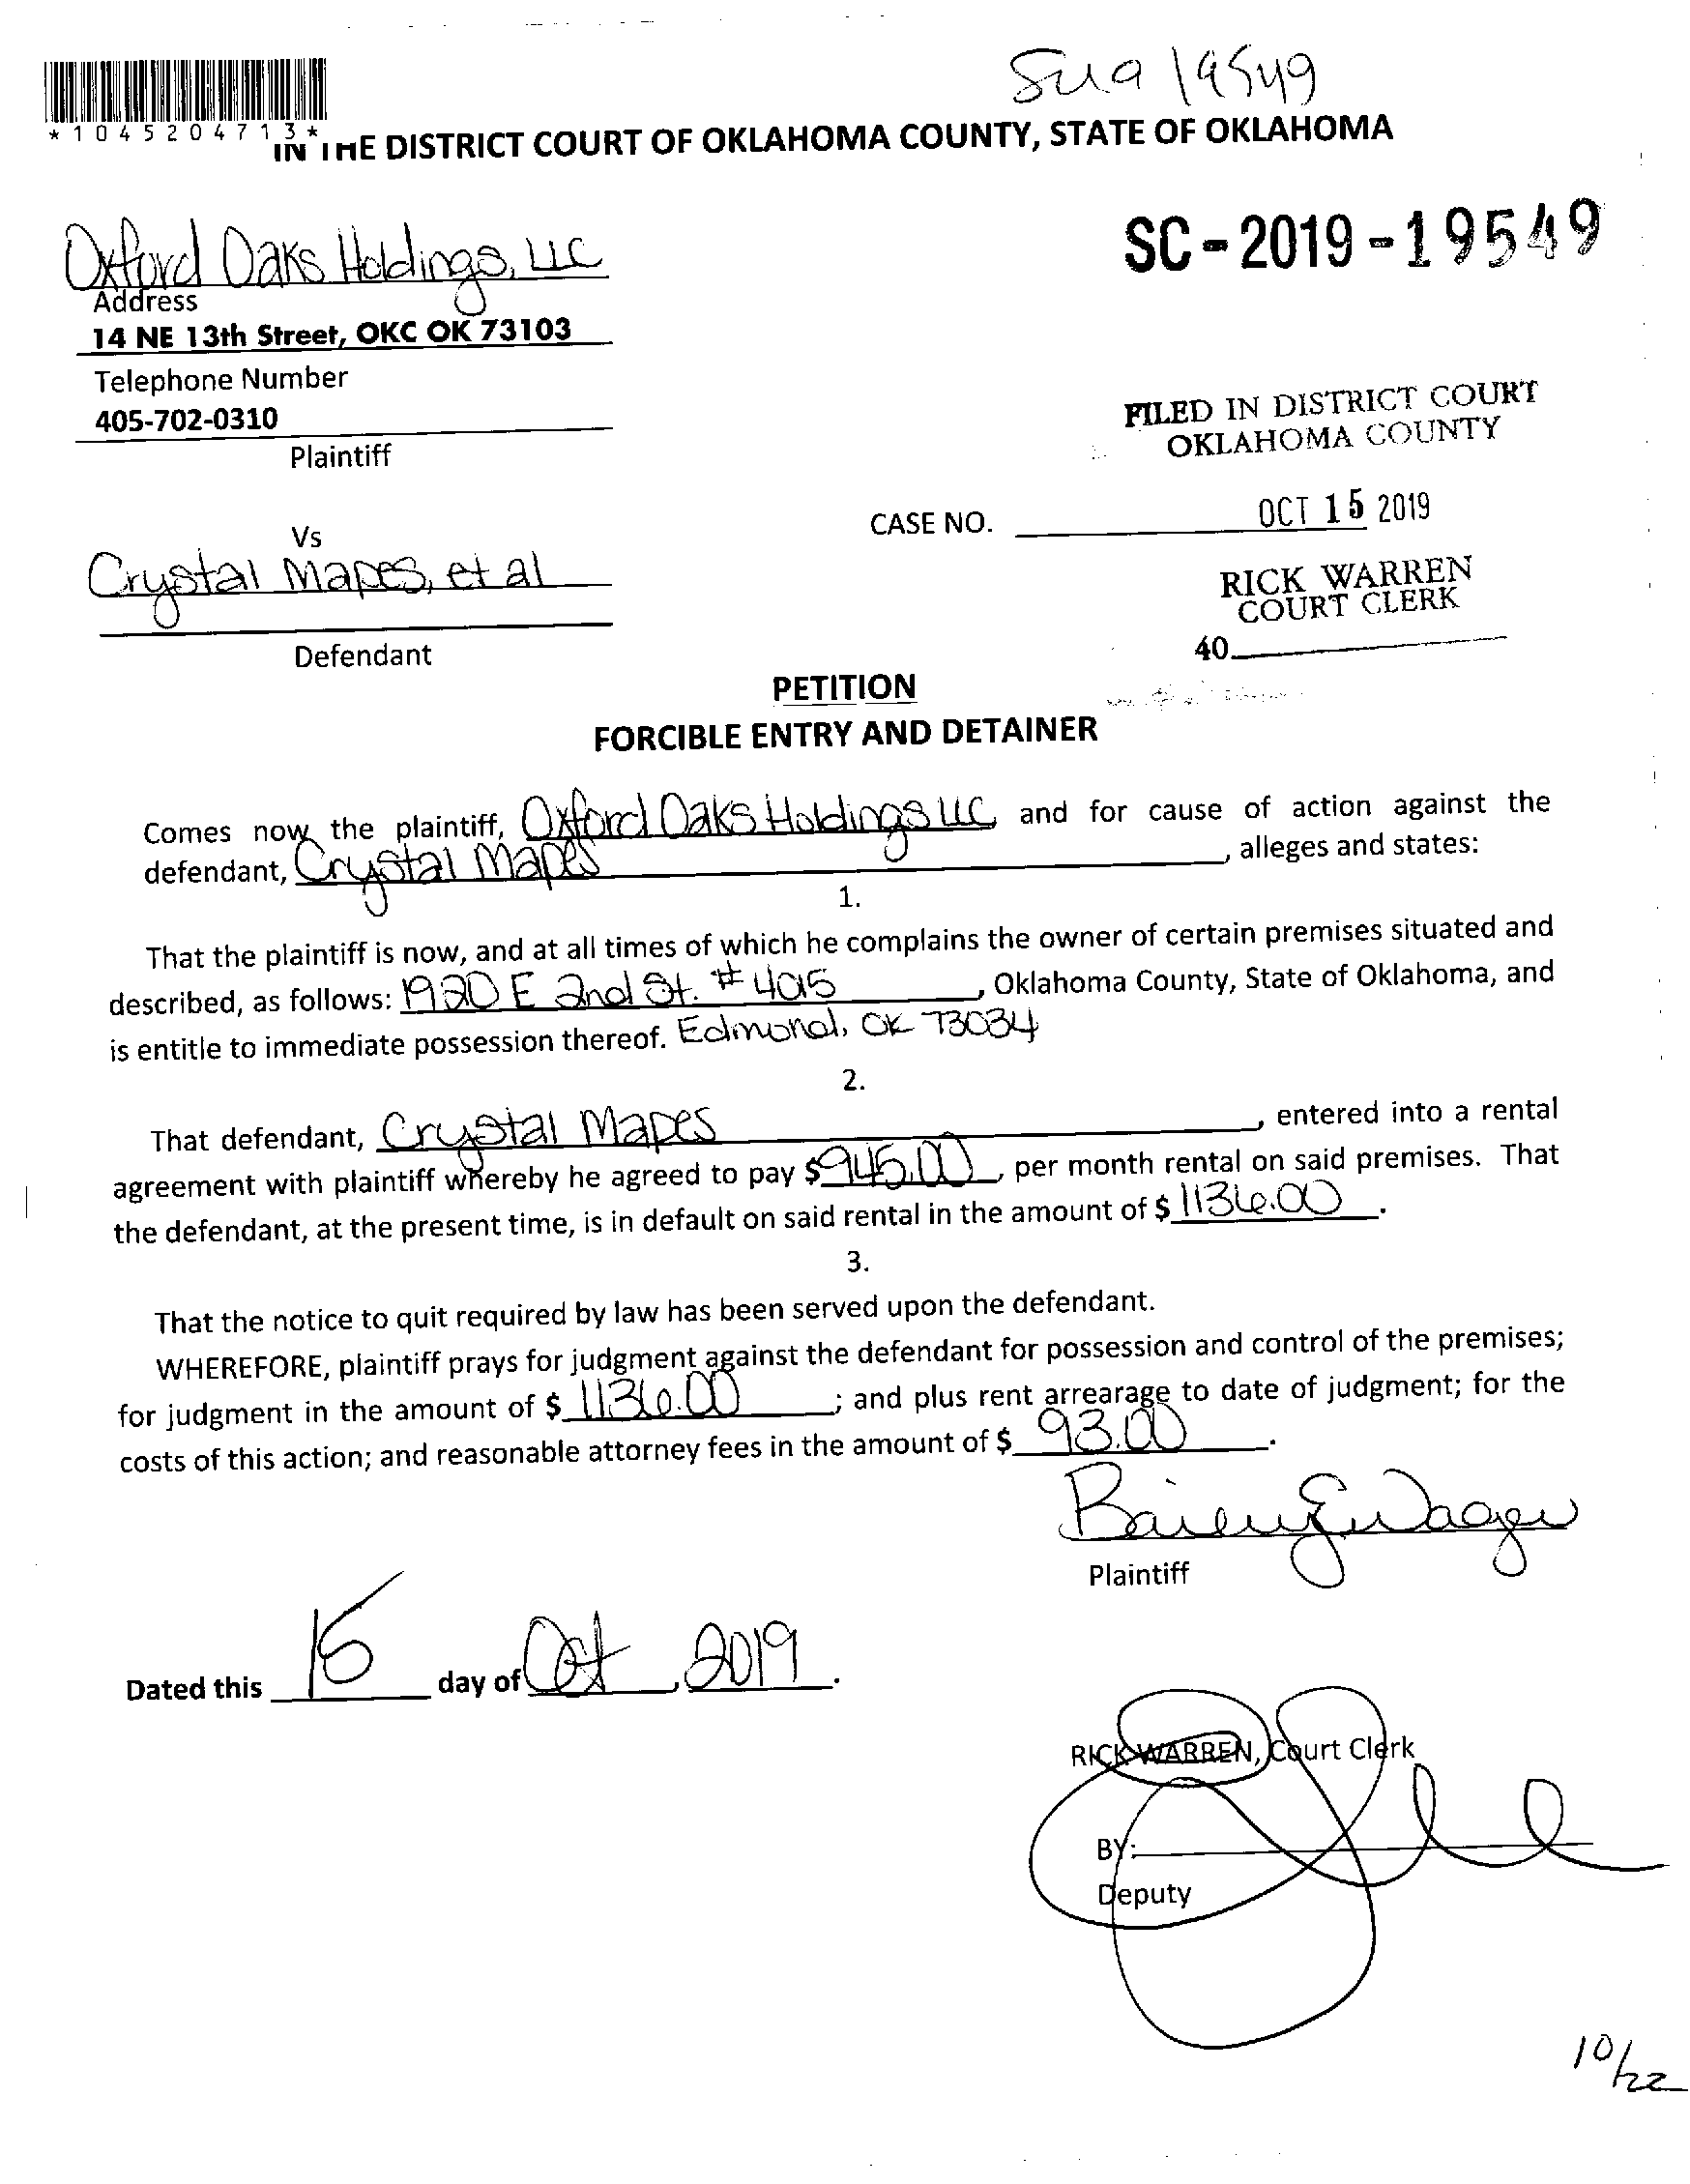 Su9 19549
*1045204713*
IN THE DISTRICT COURT OF OKLAHOMA COUNTY, STATE OF OKLAHOMA
Oxford Oaks Holdings, LLC
SC-2019-19549
Address
14 NE 13th Street, OKC OK 73103
Telephone Number
405-702-0310
Plaintiff
FILED IN DISTRICT COURT
OKLAHOMA COUNTY
Vs
CASE NO.
OCT 15 2019
Crystal Mapes, et al
RICK WARREN
COURT CLERK
Defendant
40
PETITION
FORCIBLE ENTRY AND DETAINER
Comes now the plaintiff, Oxford Oaks Holdings LLC and for cause of action against the
defendant, Crystal Mapes, alleges and states:
1.
That the plaintiff is now, and at all times of which he complains the owner of certain premises situated and
described, as follows: 1920 E 2nd St. # 4015, Oklahoma County, State of Oklahoma, and
is entitle to immediate possession thereof. Edmond, OK 73034
2.
That defendant, Crystal Mapes, entered into a rental
agreement with plaintiff whereby he agreed to pay $945.00, per month rental on said premises. That
the defendant, at the present time, is in default on said rental in the amount of $1136.00.
3.
That the notice to quit required by law has been served upon the defendant.
WHEREFORE, plaintiff prays for judgment against the defendant for possession and control of the premises;
for judgment in the amount of $1136.00; and plus rent arrearage to date of judgment; for the
costs of this action; and reasonable attorney fees in the amount of $93.00.
Plaintiff
Dated this 15 day of Oct, 2019.
RICK WARREN, Court Clerk
BY:
Deputy
10/22